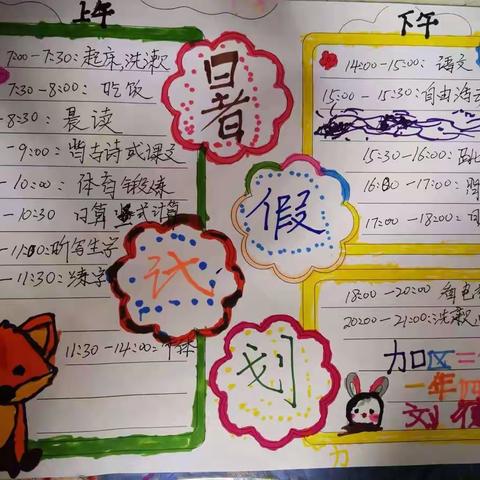 上午
7:00-7:30:起床,洗漱
7:30-8:00:吃饭
-8:30:晨读
-9:00:背古诗或课文
-10:00:体育锻炼
-10:30 口算 竖式计算
听写生字
-11:30:练字
11:30-14:00:午休
暑
假
计
划
下午
14:00-15:00:语文
15:00-15:30:自由活
15:30-16:00:
-17:00:
17:00-18:00:
18:00-20:00
20:00-21:00:洗漱
加
一年四
刘